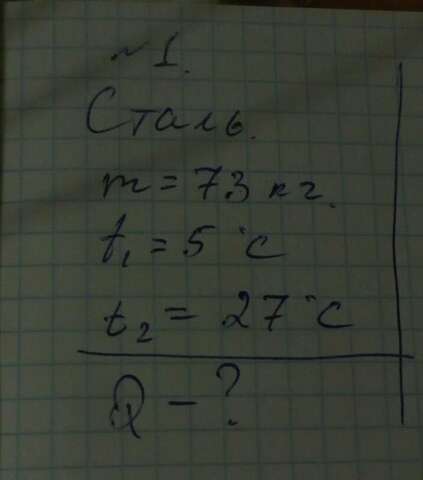 №1.
Сталь.
m = 73 кг.
t₁ = 5 °C
t₂ = 27 °C
Q - ?